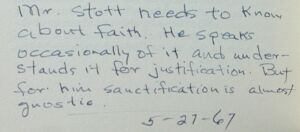 Mr. Stott needs to know
about faith. He speaks
occasionally of it and under-
stands it for justification. But
for him sanctification is almost
gnostic.
5-27-67